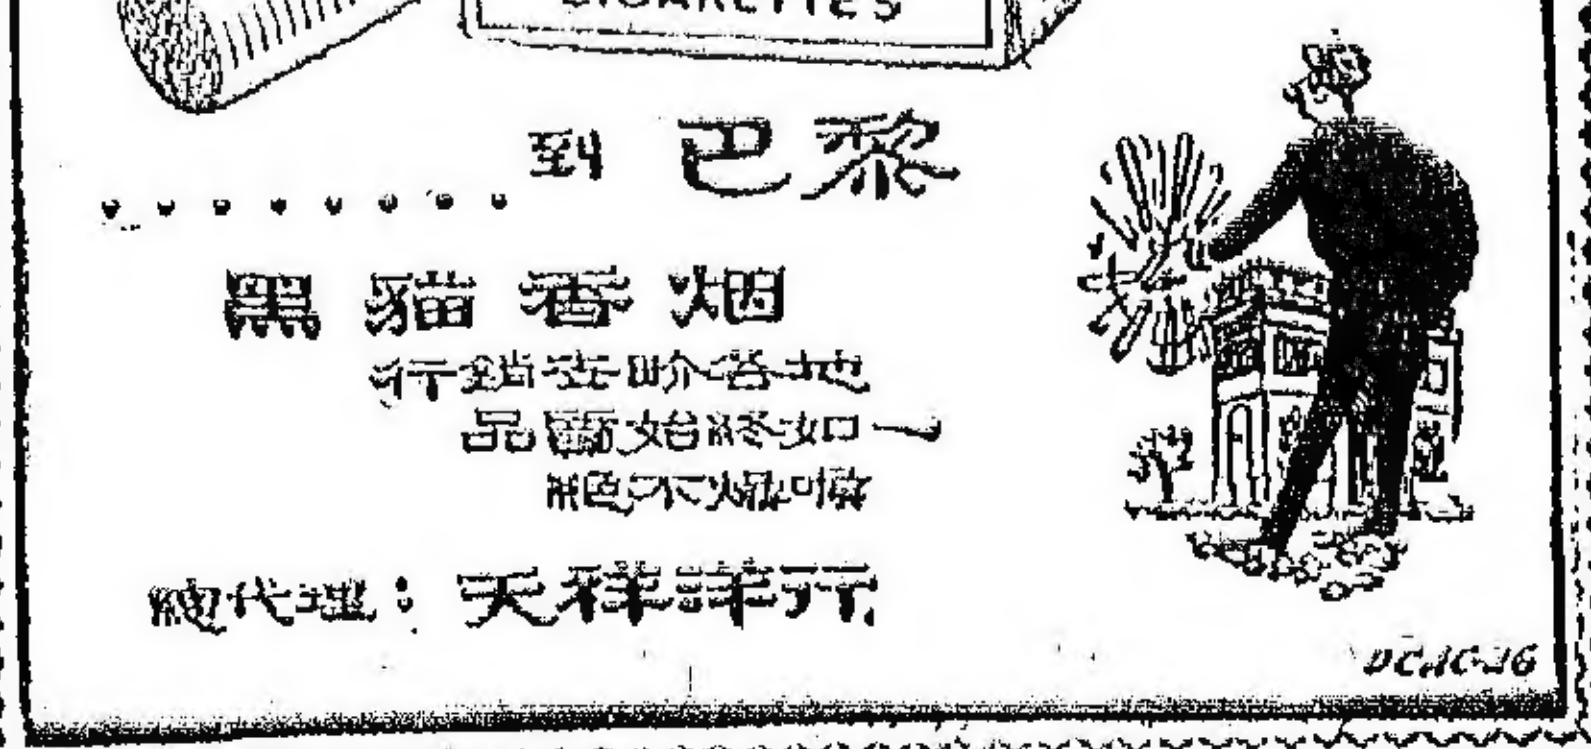 CIGARETTES
........到巴黎
黑貓香烟
行銷世界各地
品質始終如一
絕不爆喉
總代理：天祥洋行